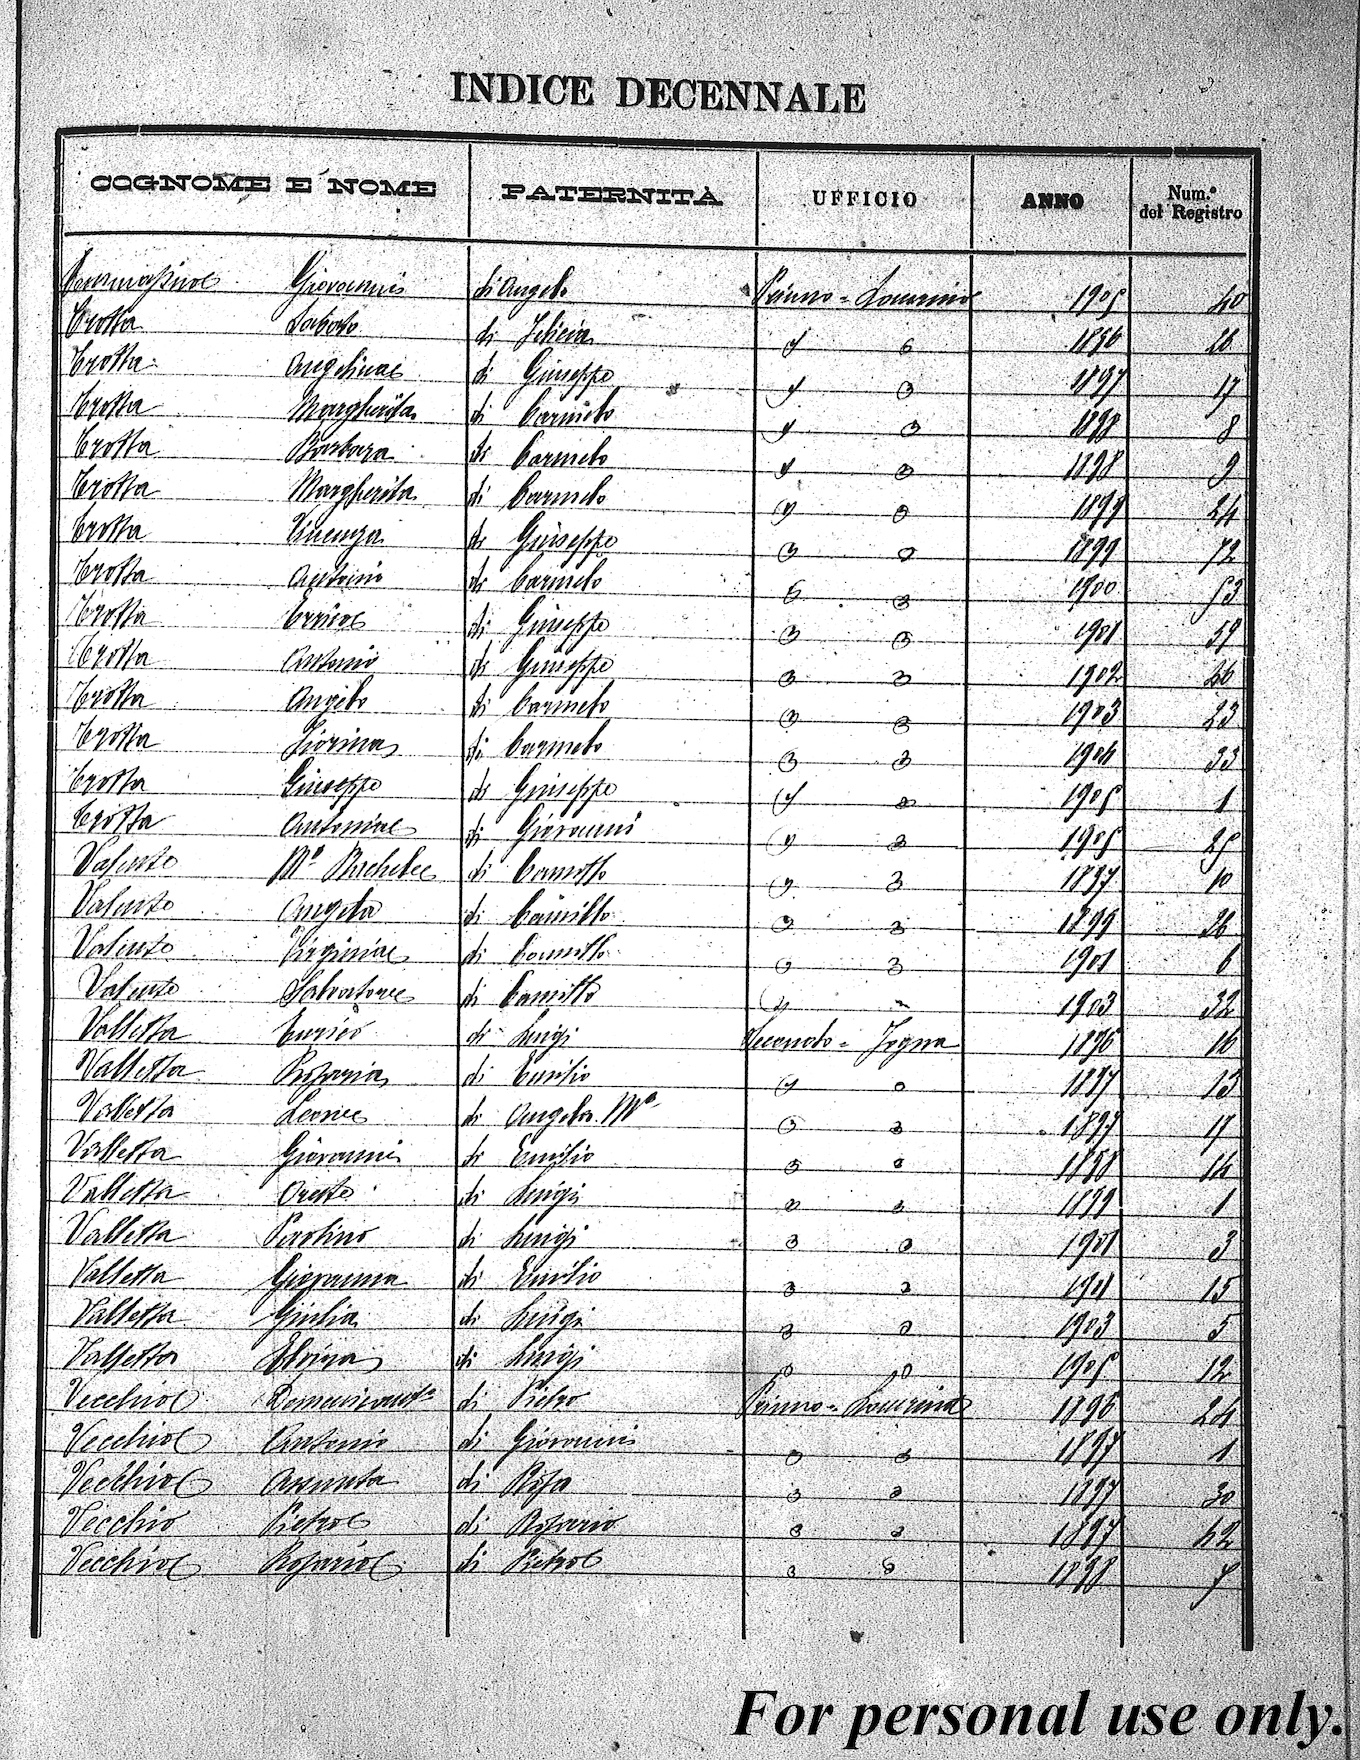 INDICE DECENNALE
COGNOME E NOME PATERNITÀ UFFICIO ANNO Num.º del Registro
Giovanni di Angelo Primo = 1905 40
Trotta Sabato di Felicia 1896 26
Trotta Angelina di Giuseppe " " 1897 17
Trotta Margherita di Carmelo " " 1898 8
Trotta Barbara di Carmelo " " 1898 9
Trotta Margherita di Carmelo " " 1899 24
Trotta Vicenza di Giuseppe " " 1899 72
Trotta Antonio di Carmelo " " 1900 53
Trotta Errico di Giuseppe " " 1901 59
Trotta Antonio di Giuseppe " " 1902 26
Trotta Angelo di Carmelo " " 1903 23
Trotta Fiorina di Carmelo " " 1904 33
Trotta Giuseppe di Giuseppe " " 1905 1
Trotta Antonia di Giovanni " " 1905 25
Valente Mª Michela di Camillo " " 1897 10
Valente Angela di Camillo " " 1899 26
Valente Virginia di Camillo " " 1901 6
Valente Salvatore di Camillo " " 1903 32
Valletta Enrico di Luigi Secondo = Jogna 1896 16
Valletta Rosaria di Emilio " " 1897 13
Valletta Leonice di Angela Mª " " 1897 17
Valletta Giovanni di Emilio " " 1898 14
Valletta Oreste di Luigi " " 1899 1
Valletta Paolino di Luigi " " 1901 3
Valletta Giovanna di Emilio " " 1901 15
Valletta Giulia di Luigi " " 1903 5
Valletta Elvira di Luigi " " 1905 12
Vecchio di Pietro Primo = 1896 24
Vecchio Antonio di Giovanni " " 1897 1
Vecchio Assunta di Rosa " " 1897 30
Vecchio Pietro di Rosario " " 1897 42
Vecchio Rosario di Pietro " " 1898 7
For personal use only.